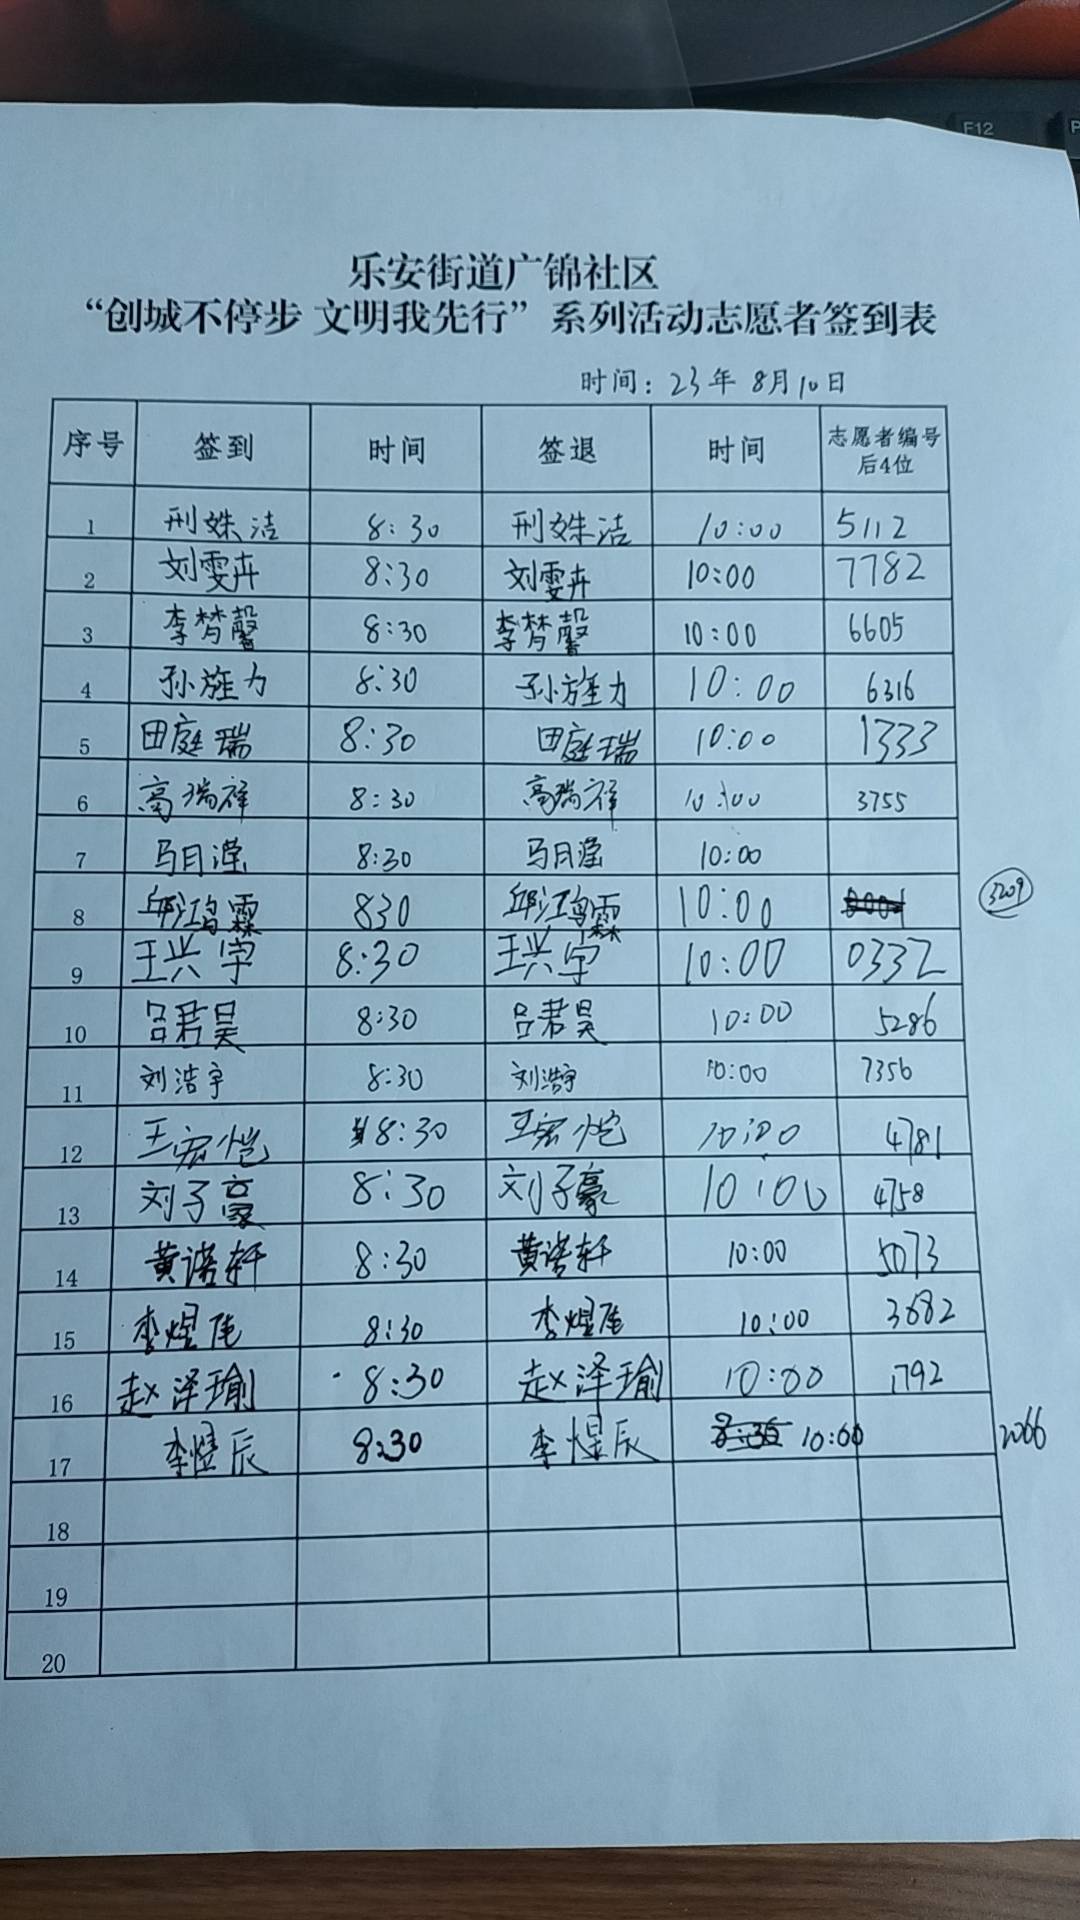 F12
P
乐安街道广锦社区
“创城不停步 文明我先行”系列活动志愿者签到表
时间：23年 8月10日
序号 签到 时间 签退 时间 志愿者编号后4位
1 刑姝洁 8:30 刑姝洁 10:00 5112
2 刘雯卉 8:30 刘雯卉 10:00 7782
3 李梦馨 8:30 李梦馨 10:00 6605
4 孙旌力 8:30 孙旌力 10:00 6316
5 田庭瑞 8:30 田庭瑞 10:00 1333
6 高瑞祥 8:30 高瑞祥 10:00 3755
7 马月滢 8:30 马月滢 10:00
8 邱鸿霖 830 邱鸿霖 10:00 3209
9 王兴宇 8:30 王兴宇 10:00 0332
10 吕君昊 8:30 吕君昊 10:00 5286
11 刘浩宇 8:30 刘浩宇 10:00 7356
12 王宏恺 8:30 王宏恺 10:00 4781
13 刘子豪 8:30 刘子豪 10:00 4758
14 黄诺轩 8:30 黄诺轩 10:00 5073
15 李煜 8:30 李煜 10:00 3682
16 赵泽瑜 8:30 赵泽瑜 10:00 1792
17 李煜辰 8:30 李煜辰 8:30 10:00 2066
18
19
20